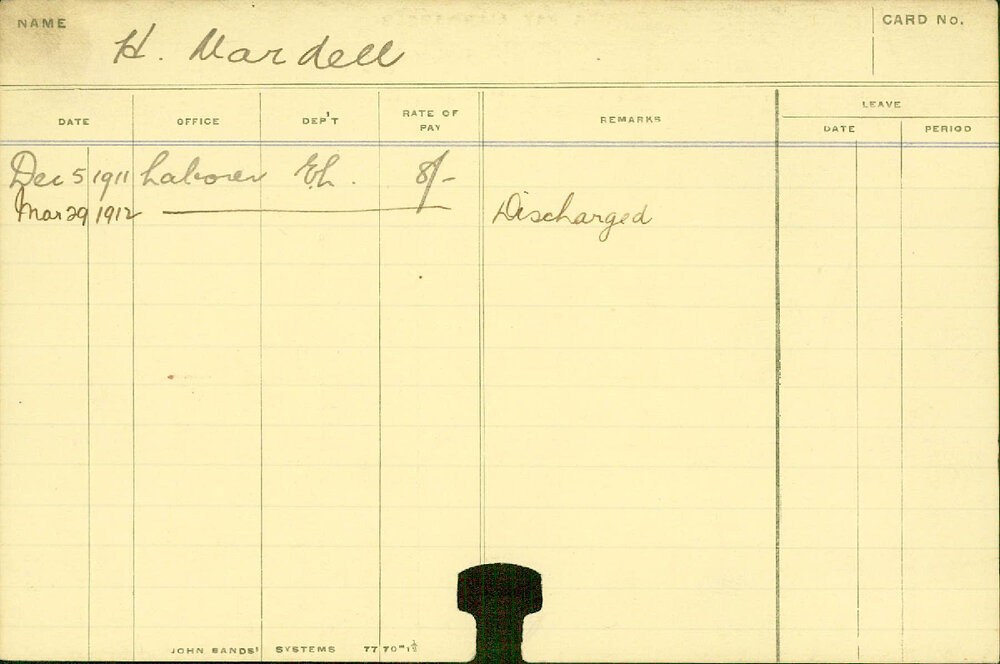 NAME H. Wardell CARD No.
DATE OFFICE DEP'T RATE OF PAY REMARKS LEAVE
DATE PERIOD
Dec 5 1911 Laborer 8/-
Mar 29 1912 Discharged
JOHN SANDS' SYSTEMS